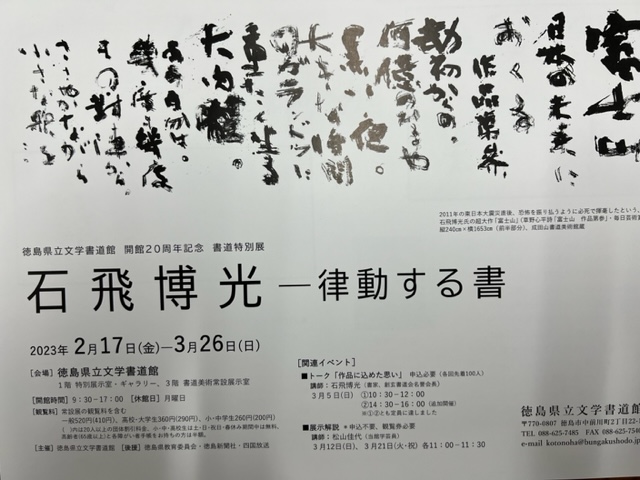 富士山
日本の未来に
作品第参
劫初からの。
何億のひるや
黒い夜。
大きな時間の
ガランドウに
大肉体。
2011年の東日本大震災直後、恐怖を振り払うように必死で揮毫したという、
石飛博光氏の超大作「富士山」（草野心平詩「富士山　作品第参」・毎日芸術賞
縦240cm×横1653cm（前半部分）、成田山書道美術館蔵
徳島県立文学書道館 開館20周年記念 書道特別展
石飛博光―律動する書
2023年 2月17日(金)―3月26日(日)
［会場］徳島県立文学書道館
1階 特別展示室・ギャラリー、3階 書道美術常設展示室
［開館時間］9：30－17：00［休館日］月曜日
［観覧料］常設展の観覧料を含む
一般520円(410円)、高校・大学生360円(290円)、小・中学生260円(200円)
（ ）内は20人以上の団体割引料金、小・中・高校生は土・日・祝日・春休み期間中は無料、
高齢者(65歳以上)と各障がい者手帳をお持ちの方は半額。
［主催］徳島県立文学書道館［後援］徳島県教育委員会・徳島新聞社・四国放送
［関連イベント］
■トーク「作品に込めた思い」 申込必要（各回先着100人）
講師：石飛博光（書家、創玄書道会名誉会長）
3月5日(日) ①10：30－12：00
②14：30－16：00（追加開催）
※①②とも定員に達しました
■展示解説 ＊申込不要、観覧券必要
講師：松山佳代（当館学芸員）
3月12日(日)、3月21日(火・祝) 各11：00－11：30
徳島県立文学書道館
〒770-0807 徳島市中前川町2丁目22-
TEL 088-625-7485 FAX 088-625-754
e-mail kotonoha@bungakushodo.j